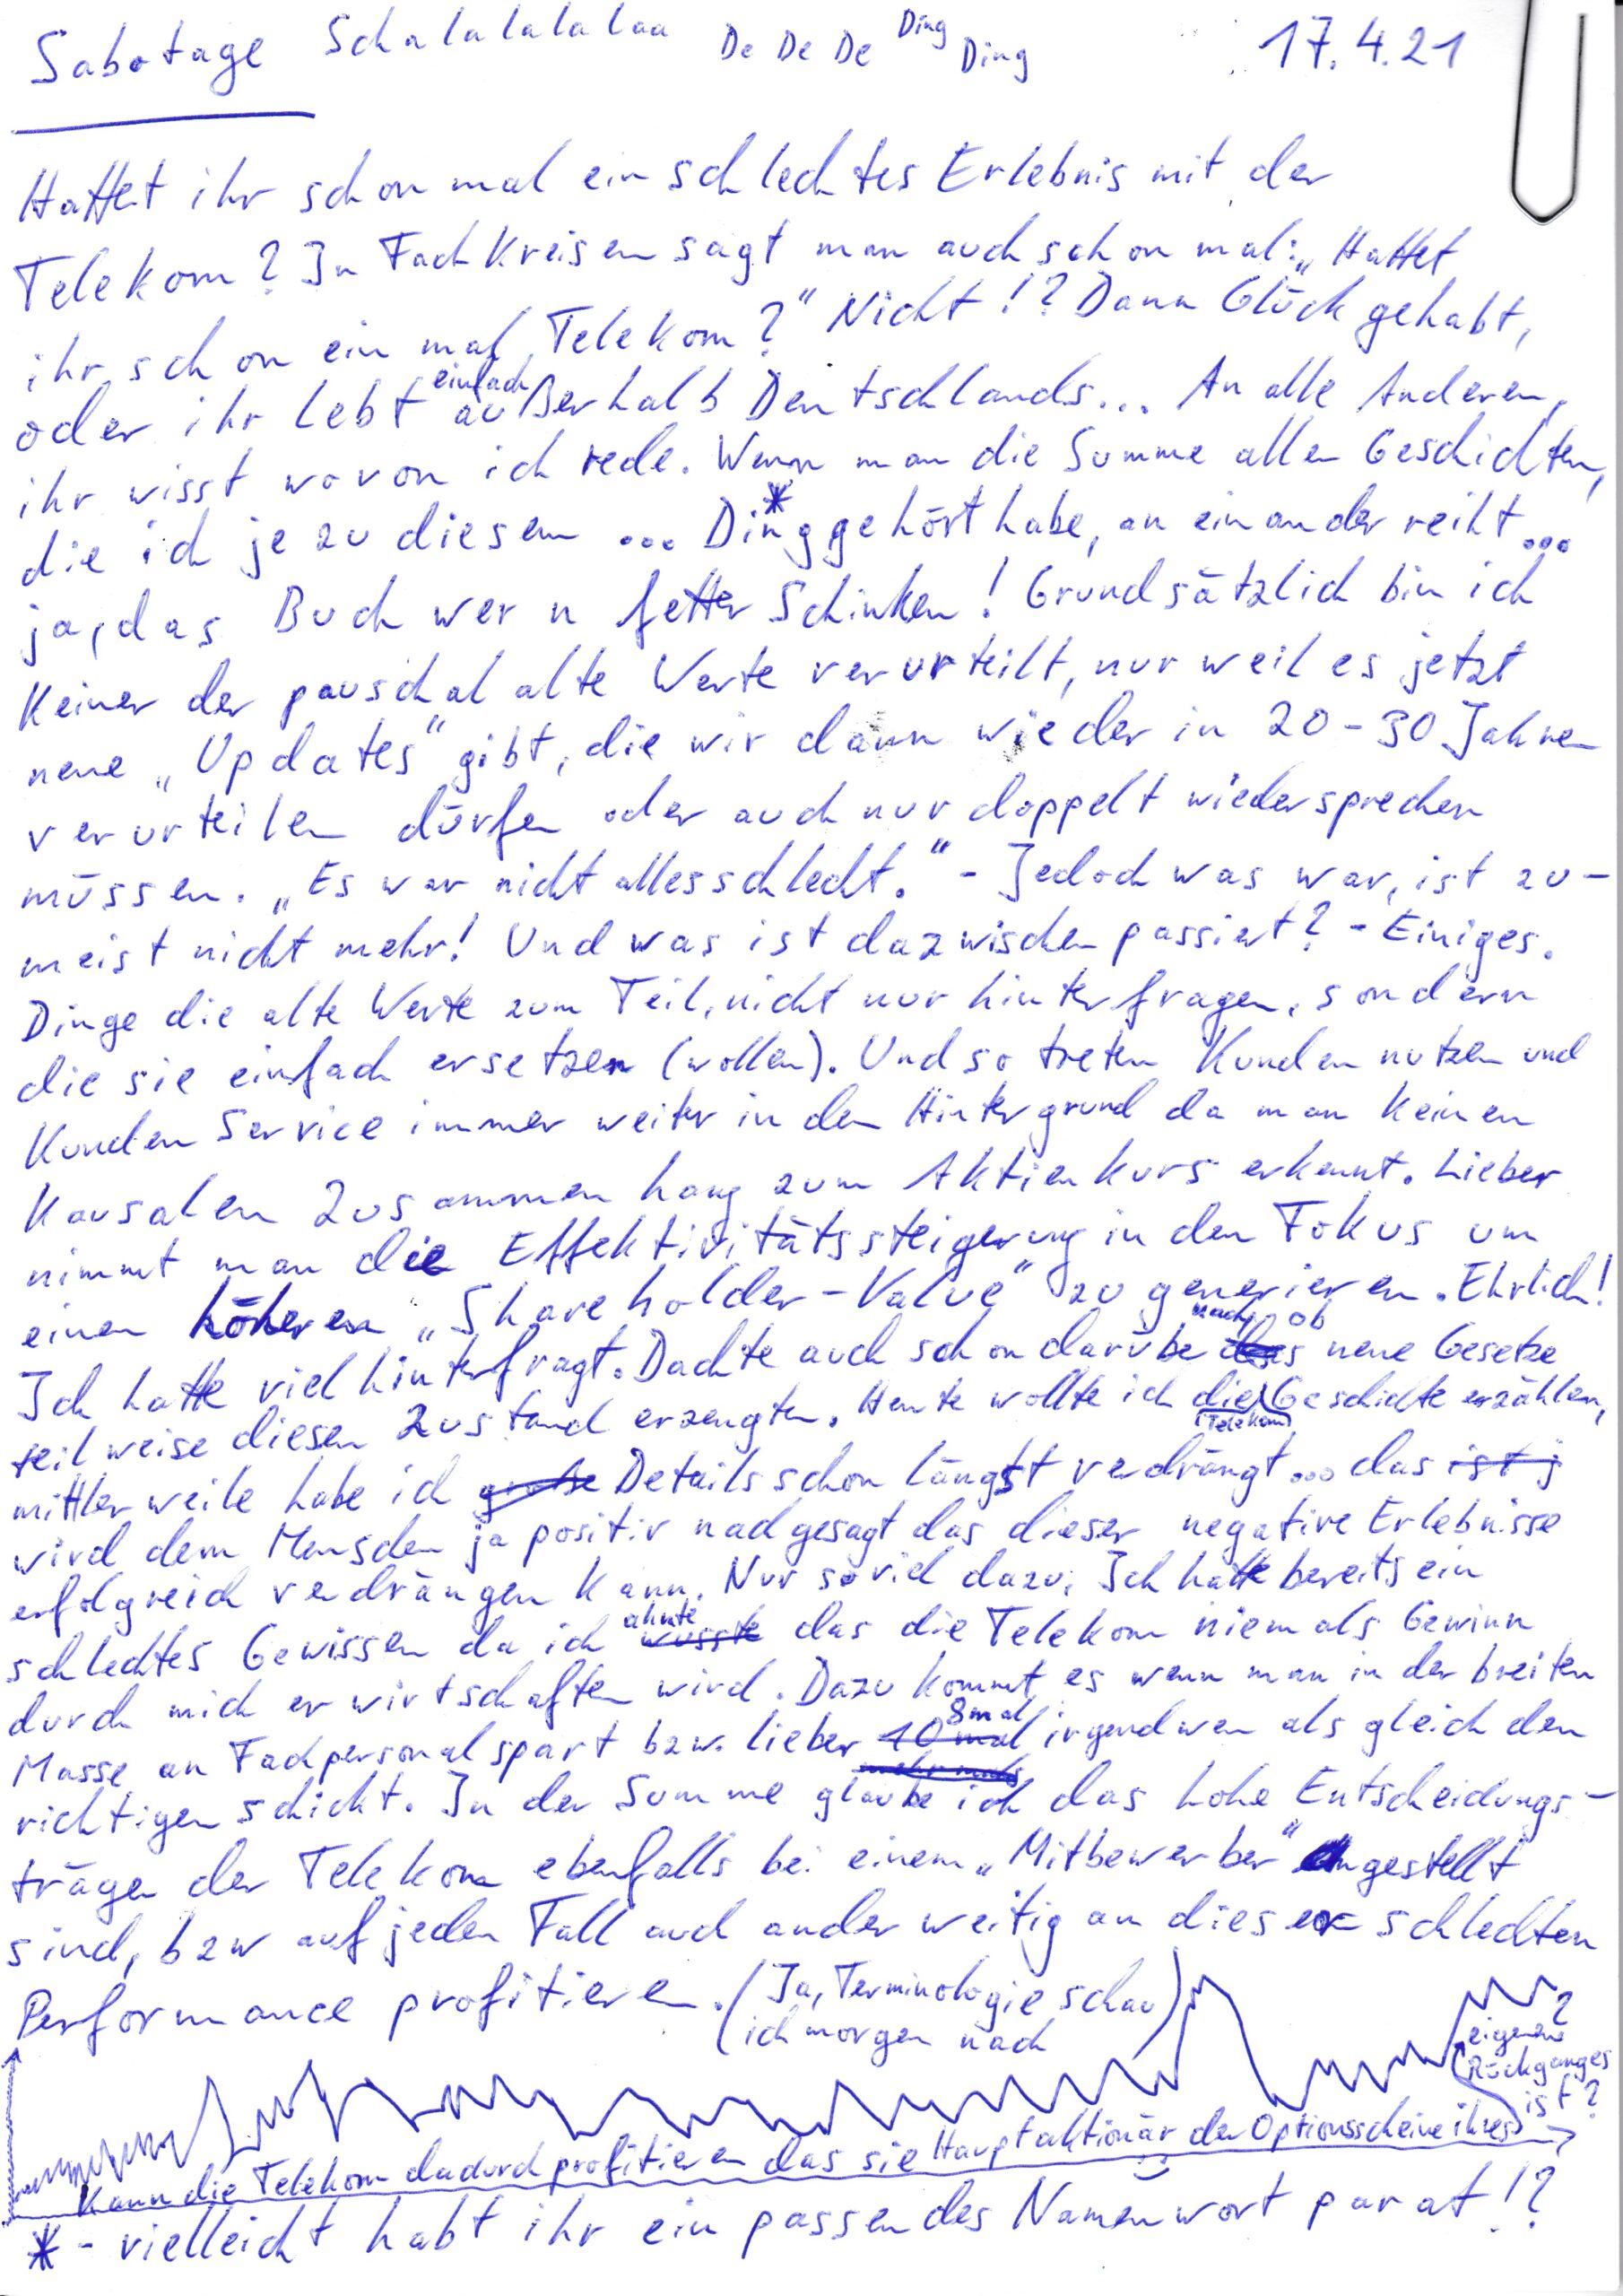 Sabotage Schalalalalaa De De De Ding Ding 17.4.21
Hattet ihr schon mal ein schlechtes Erlebnis mit der
Telekom? In Fachkreisen sagt man auch schon mal: „Hattet
ihr schon ein mal Telekom?" Nicht!? Dann Glück gehabt,
oder ihr lebt einfach außerhalb Deutschlands... An alle Anderen,
ihr wisst wovon ich rede. Wenn man die Summe aller Geschichten,
die ich je zu diesem ... Ding* gehört habe, an einander reiht...
ja, das Buch wer n fetter Schinken! Grundsätzlich bin ich
Keiner der pauschal alte Werte verurteilt, nur weil es jetzt
neue „Updates" gibt, die wir dann wieder in 20-30 Jahren
verurteilen dürfen oder auch nur doppelt wiedersprechen
müssen. „Es war nicht alles schlecht." - Jedoch was war, ist zu-
meist nicht mehr! Und was ist dazwischen passiert? - Einiges.
Dinge die alte Werte zum Teil, nicht nur hinterfragen, sondern
die sie einfach ersetzen (wollen). Und so treten Kundennutzen und
Kunden Service immer weiter in den Hintergrund da man keinen
Kausalen Zusammenhang zum Aktienkurs erkennt. Lieber
nimmt man die Effektivitätssteigerung in den Fokus um
einen höheren „Shareholder-Value" zu generieren. Ehrlich!
Ich hatte viel hinterfragt. Dachte auch schon darüber nach, ob neue Gesetze
teilweise diesen Zustand erzeugten. Heute wollte ich die (Telekom) Geschichte erzählen,
mittlerweile habe ich Details schon längst verdrängt... das ist j
wird dem Menschen ja positiv nachgesagt das dieser negative Erlebnisse
erfolgreich verdrängen kann. Nur soviel dazu, Ich hatte bereits ein
schlechtes Gewissen da ich ahnte wusste das die Telekom niemals Gewinn
durch mich erwirtschaften wird. Dazu kommt es wenn man in der breiten
Masse an Fachpersonal spart bzw. lieber 8mal 10 mal irgendwen als gleich den
richtigen schickt. In der Summe glaube ich das hohe Entscheidungs-
träger der Telekom ebenfalls bei einem „Mitbewerber" angestellt
sind, bzw auf jeden Fall auch anderweitig an dieser schlechten
Performance profitieren. (Ja, Terminologie schau
ich morgen nach)
Kann die Telekom dadurch profitieren das sie Hauptaktionär der Optionsscheine ihres
eigenen
Rückganges
ist?
* - vielleicht habt ihr ein passendes Namenwort parat!?